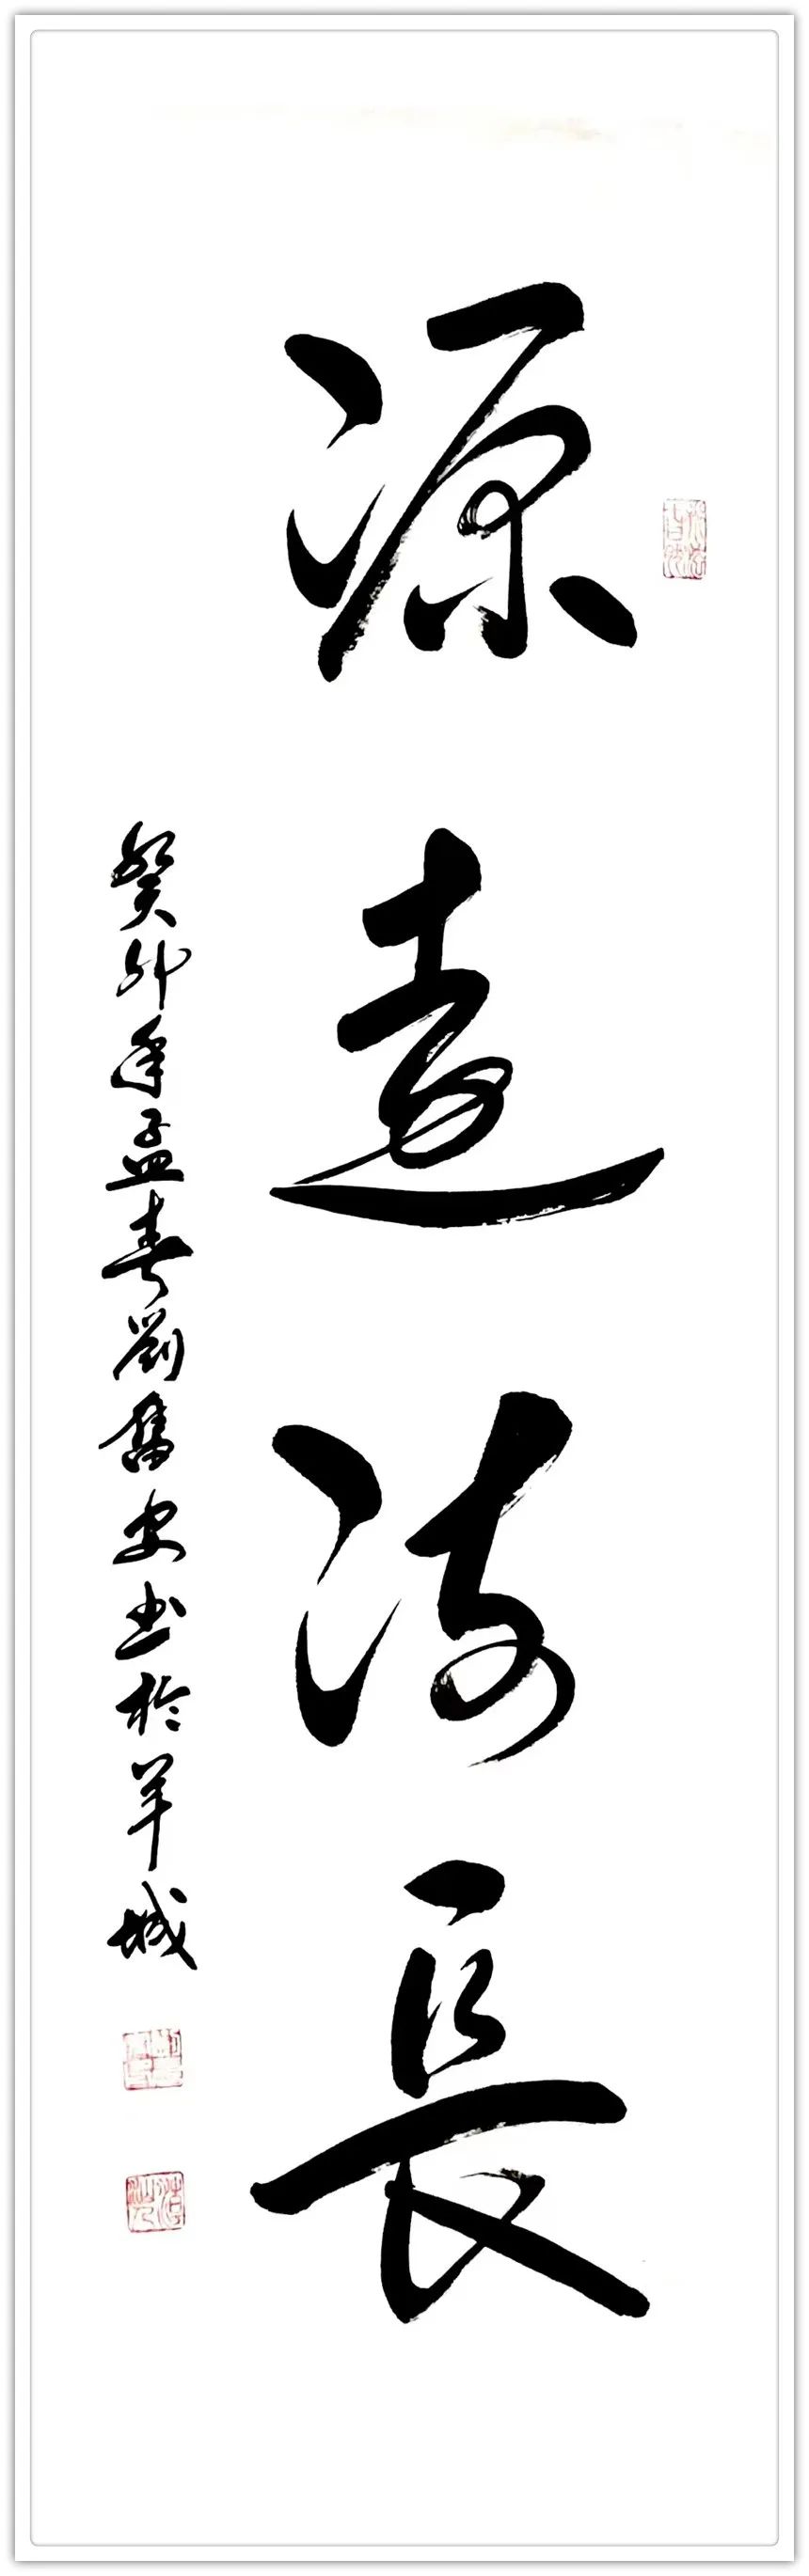 源遠流長
癸卯年孟春劉奮安书於羊城